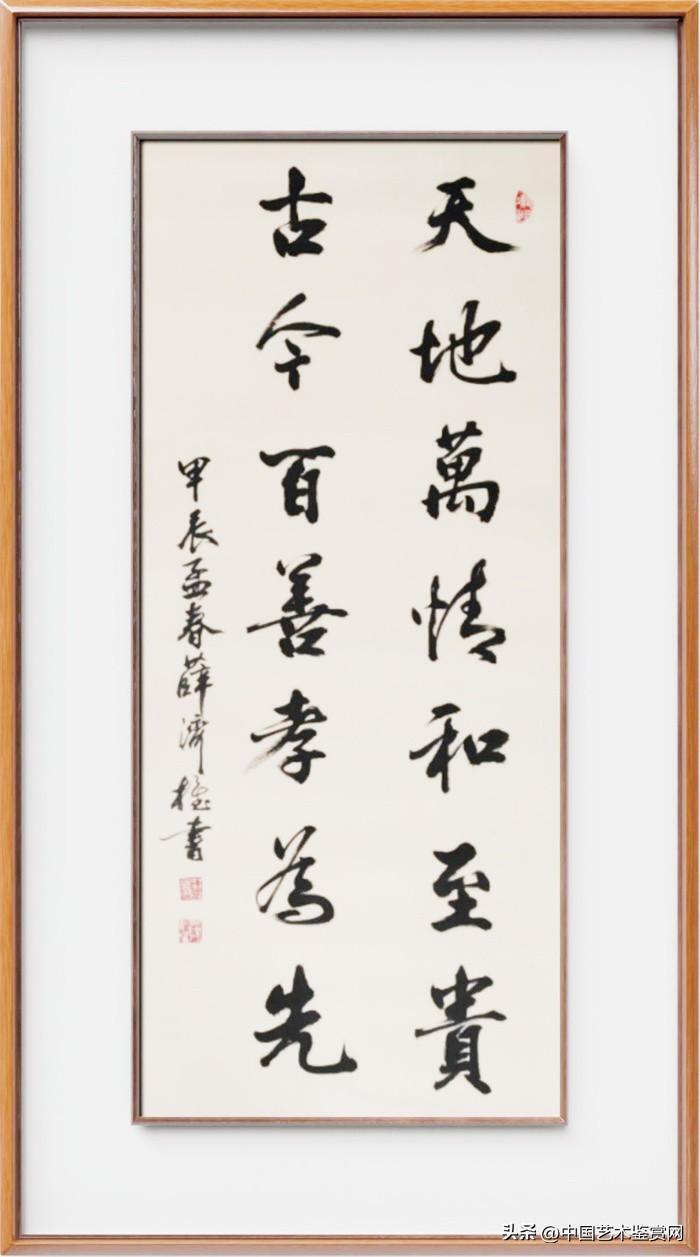 天地萬情和至貴
古今百善孝為先
甲辰孟春薛濟桂書
头条 @中国艺术鉴赏网